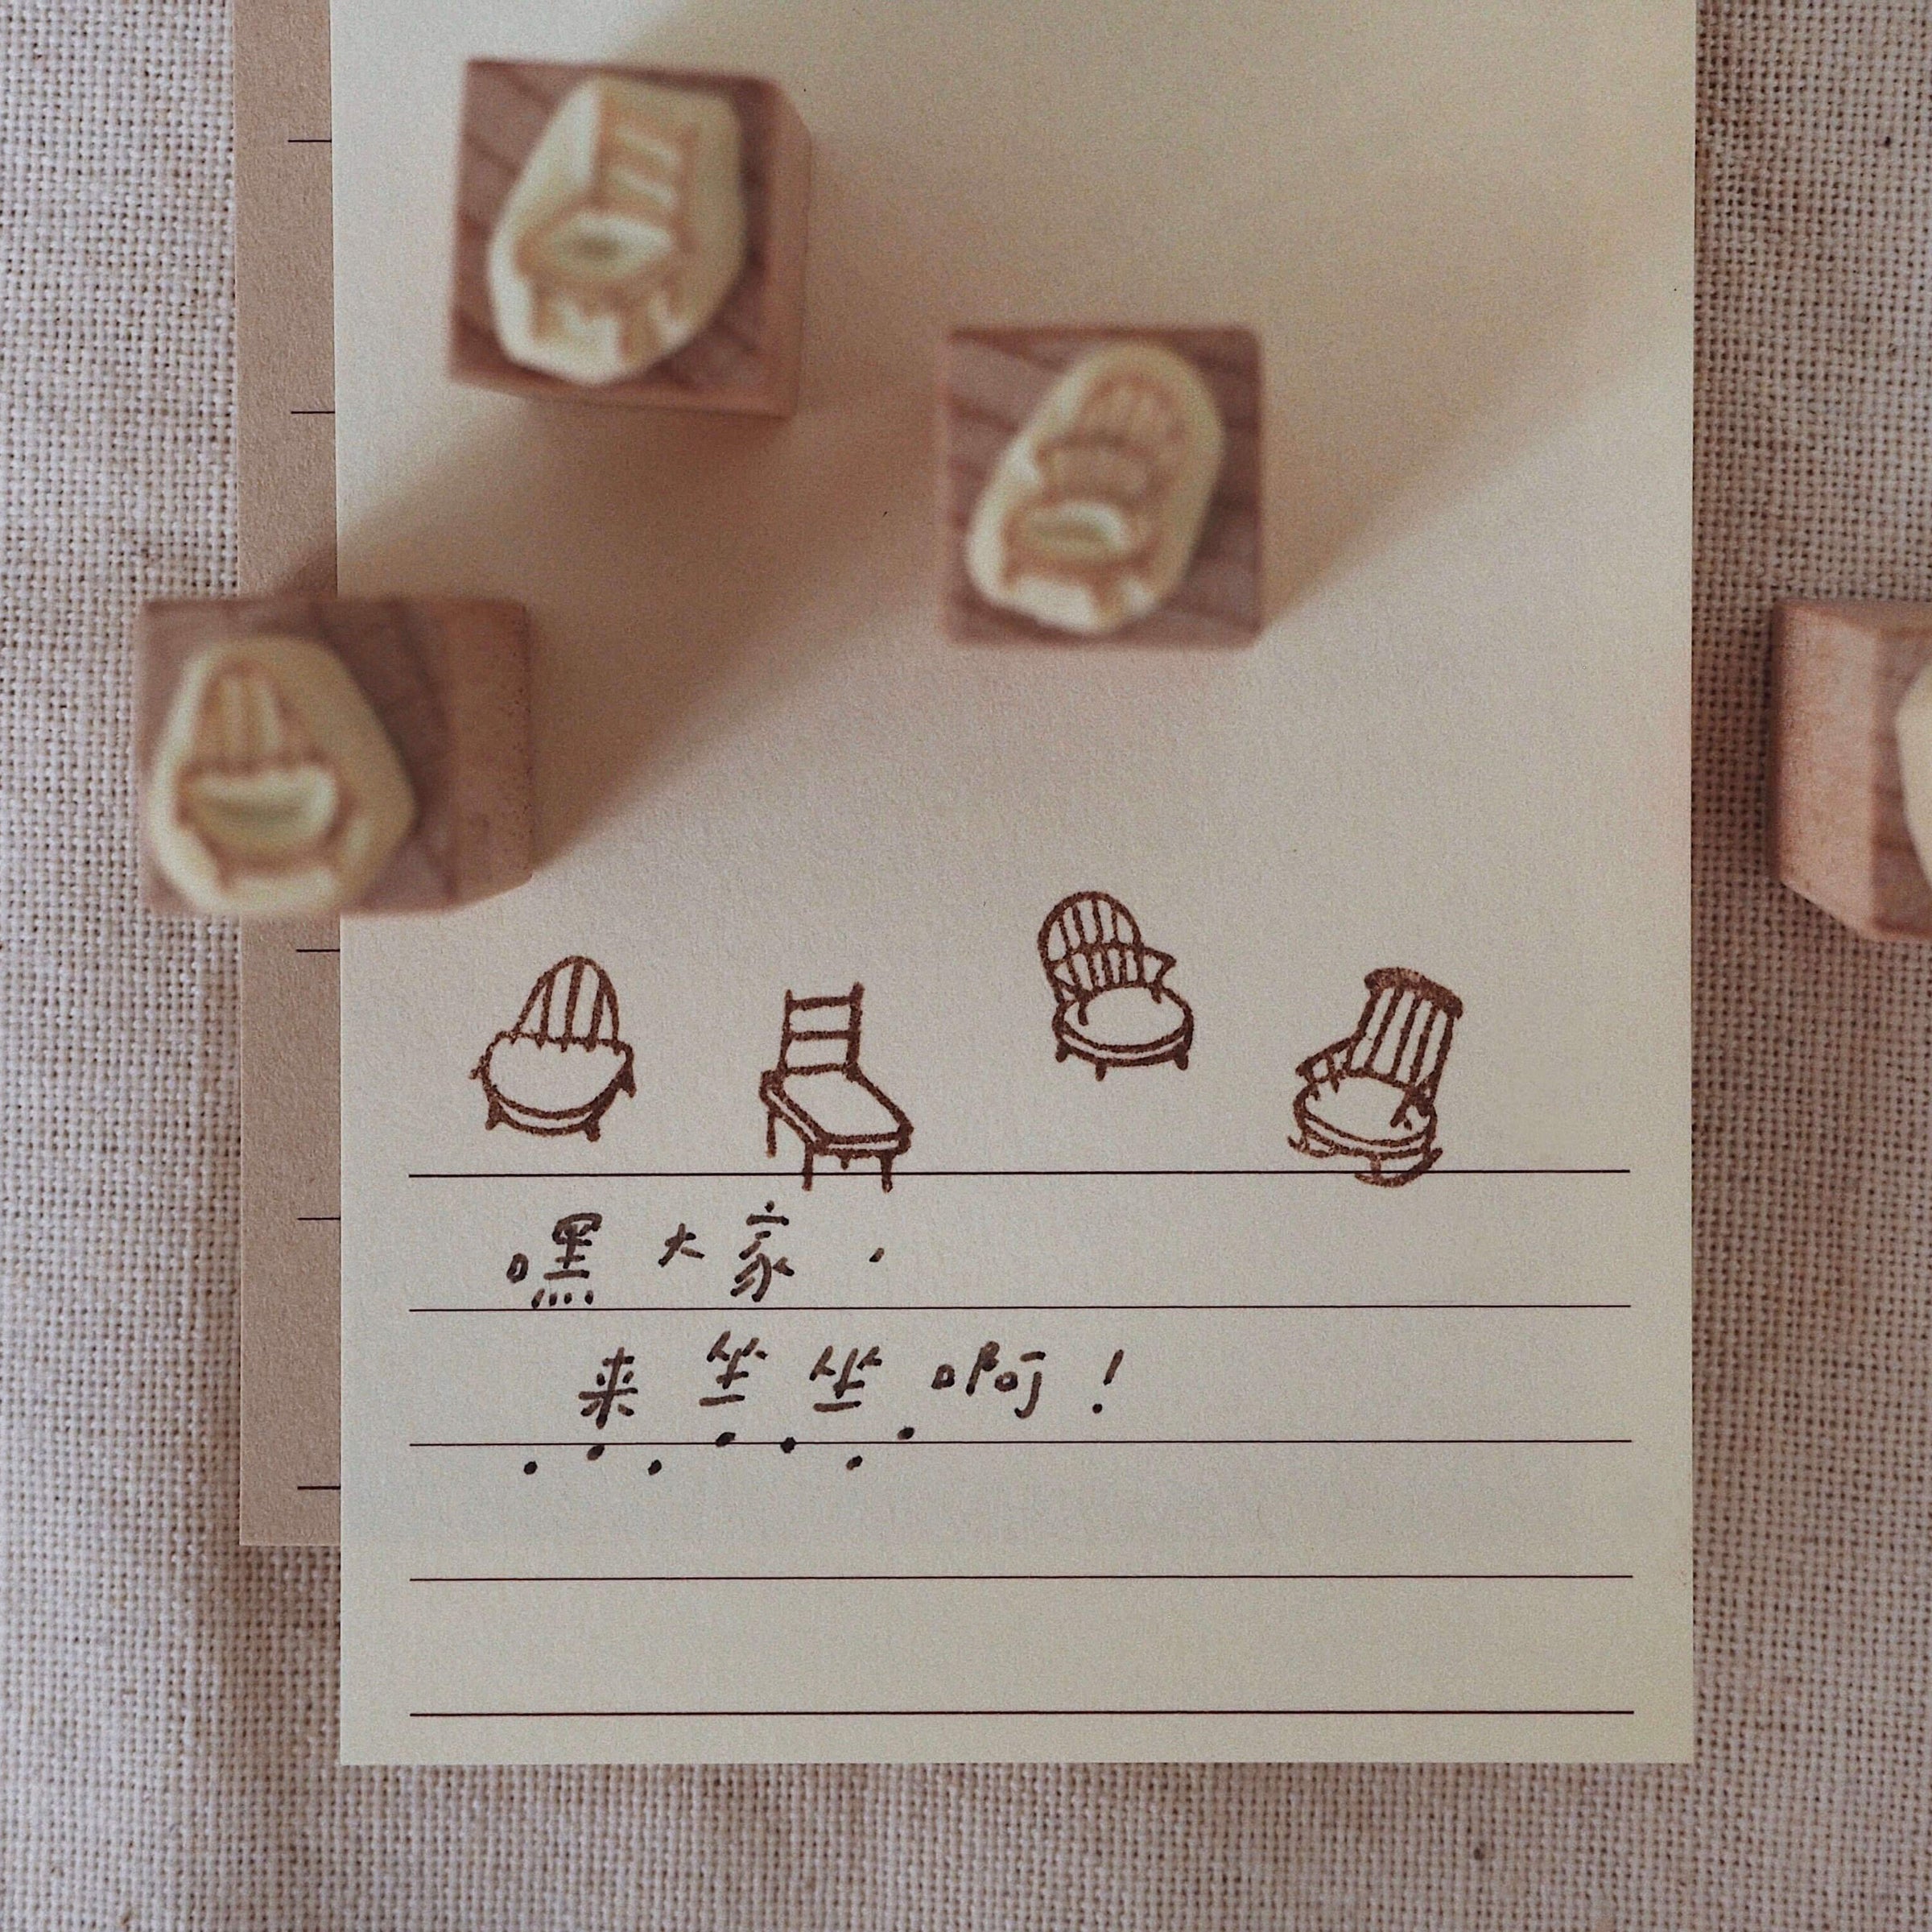 嘿大家，
来坐坐啊！